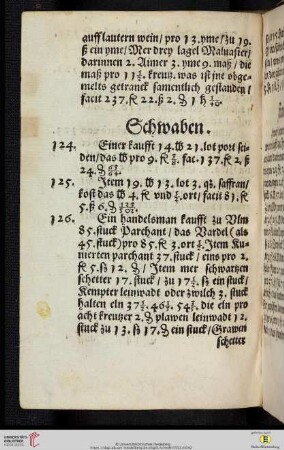 auff lautern wein / pro 13. yme / zu 19.
ß ein yme / Mer drey lagel Maluasier /
darinnen 2. Aimer 3. yme 9. maß / die
maß pro 11½. kreutz. was ist jne obge-
melts getranck samentlich gestanden /
facit 237. fl. 22. ß 2. ₰ 1 h
Schwaben.
124. Einer kaufft 14. ℔ 21. lot port sei-
den / das ℔ pro 9. fl. fac. 137. fl. 2. ß
24. ₰
125. Item 19. ℔ 13. lot 3. qz. saffran /
kost das ℔ 4. fl. vnd ort / facit 81. fl.
5. ß 6. ₰
126. Ein handelsman kaufft zu Vlm
85. stuck Parchant / das Vardel (als
45. stuck) pro 85. fl. 3. ort Item Ku-
nierten parchant 37. stuck / eins pro 2.
fl. 5. ß 12. ₰ / Item mer schwartzen
schetter 17. stuck / zu ß ein stuck /
Kempter leinwadt oder zwilch 3. stuck
halten eln die eln pro
acht kreutzer 2. ₰ plawen leinwadt 12.
stuck zu 13. ß 17. ₰ ein stuck / Grawen
schetter